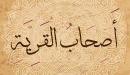 أَصْحَابُ الْقَرْيَة